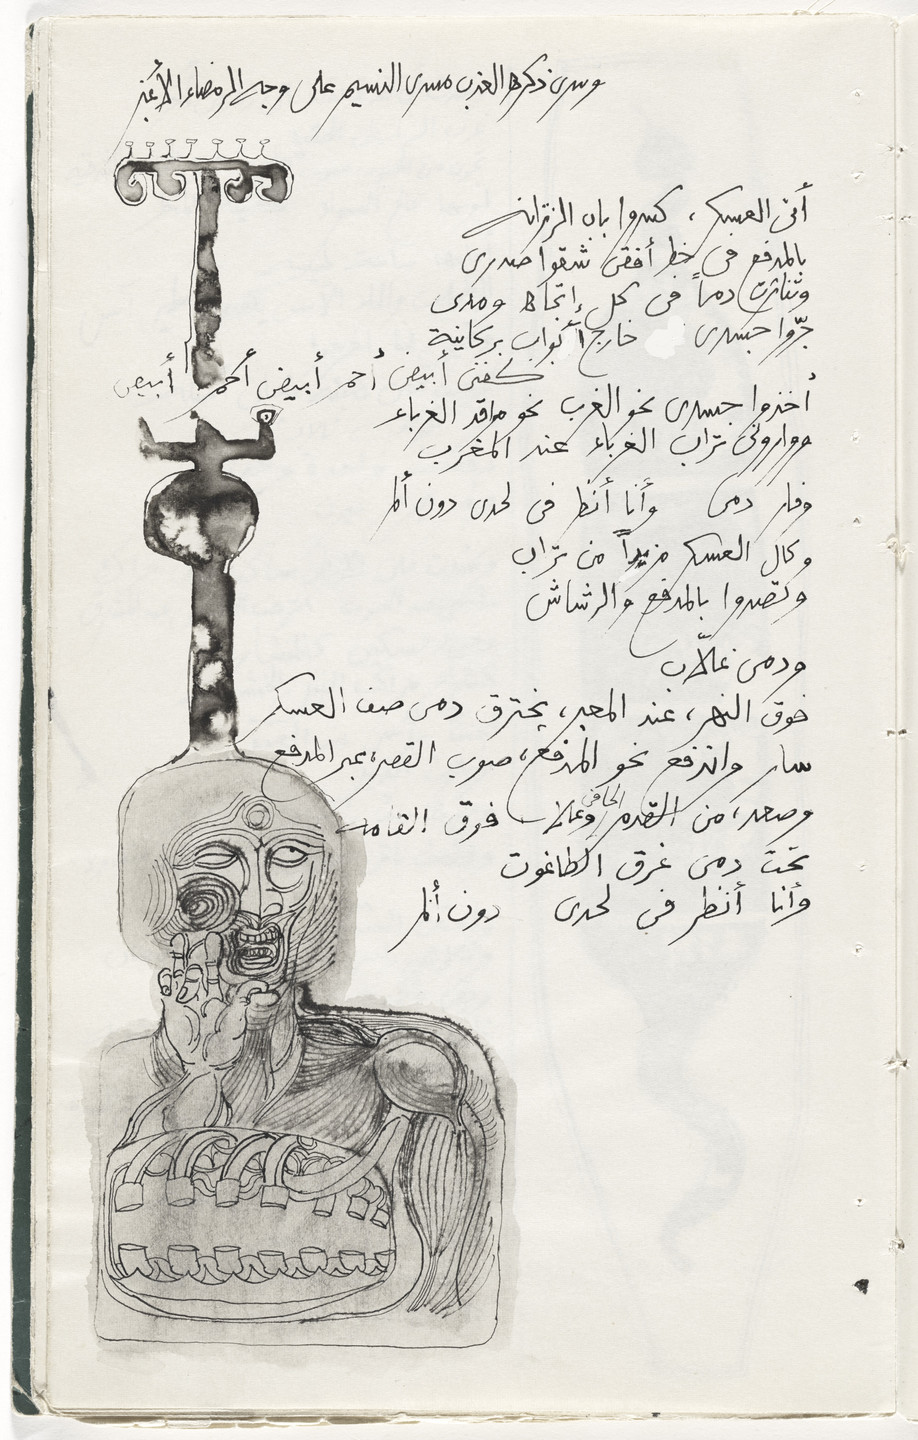 وسرى ذكره العذب مسرى النسيم على وجه الرمضاء الأغبر
أتى العسكر، كسروا باب الزنزانه
بالمدفع فى خط أفقى شقوا صدرى
وتناثرت دماً فى كل إتجاه ومدى
جرّوا جسدى خارج أبواب بركانية
كفنى أبيض أحمر أبيض أحمر أبيض
أخذوا جسدى نحو الغرب نحو مراقد الغرباء
وواروني تراب الغرباء عند المغرب
وفار دمى وأنا أنظر فى لحدى دون ألم
وكال العسكر مزيداً من تراب
وتصدوا بالمدفع والرشاش
ودمى غلاّب
فوق النهر، عند المعبر، يخترق دمى صف العسكر
سار واندفع نحو المدفع، صوب القصر، عبر المدفع
وصعد، من القدم الحافى وعلا فوق القامه
تحت دمى غرق الطاغوت
وأنا أنظر فى لحدى دون ألم